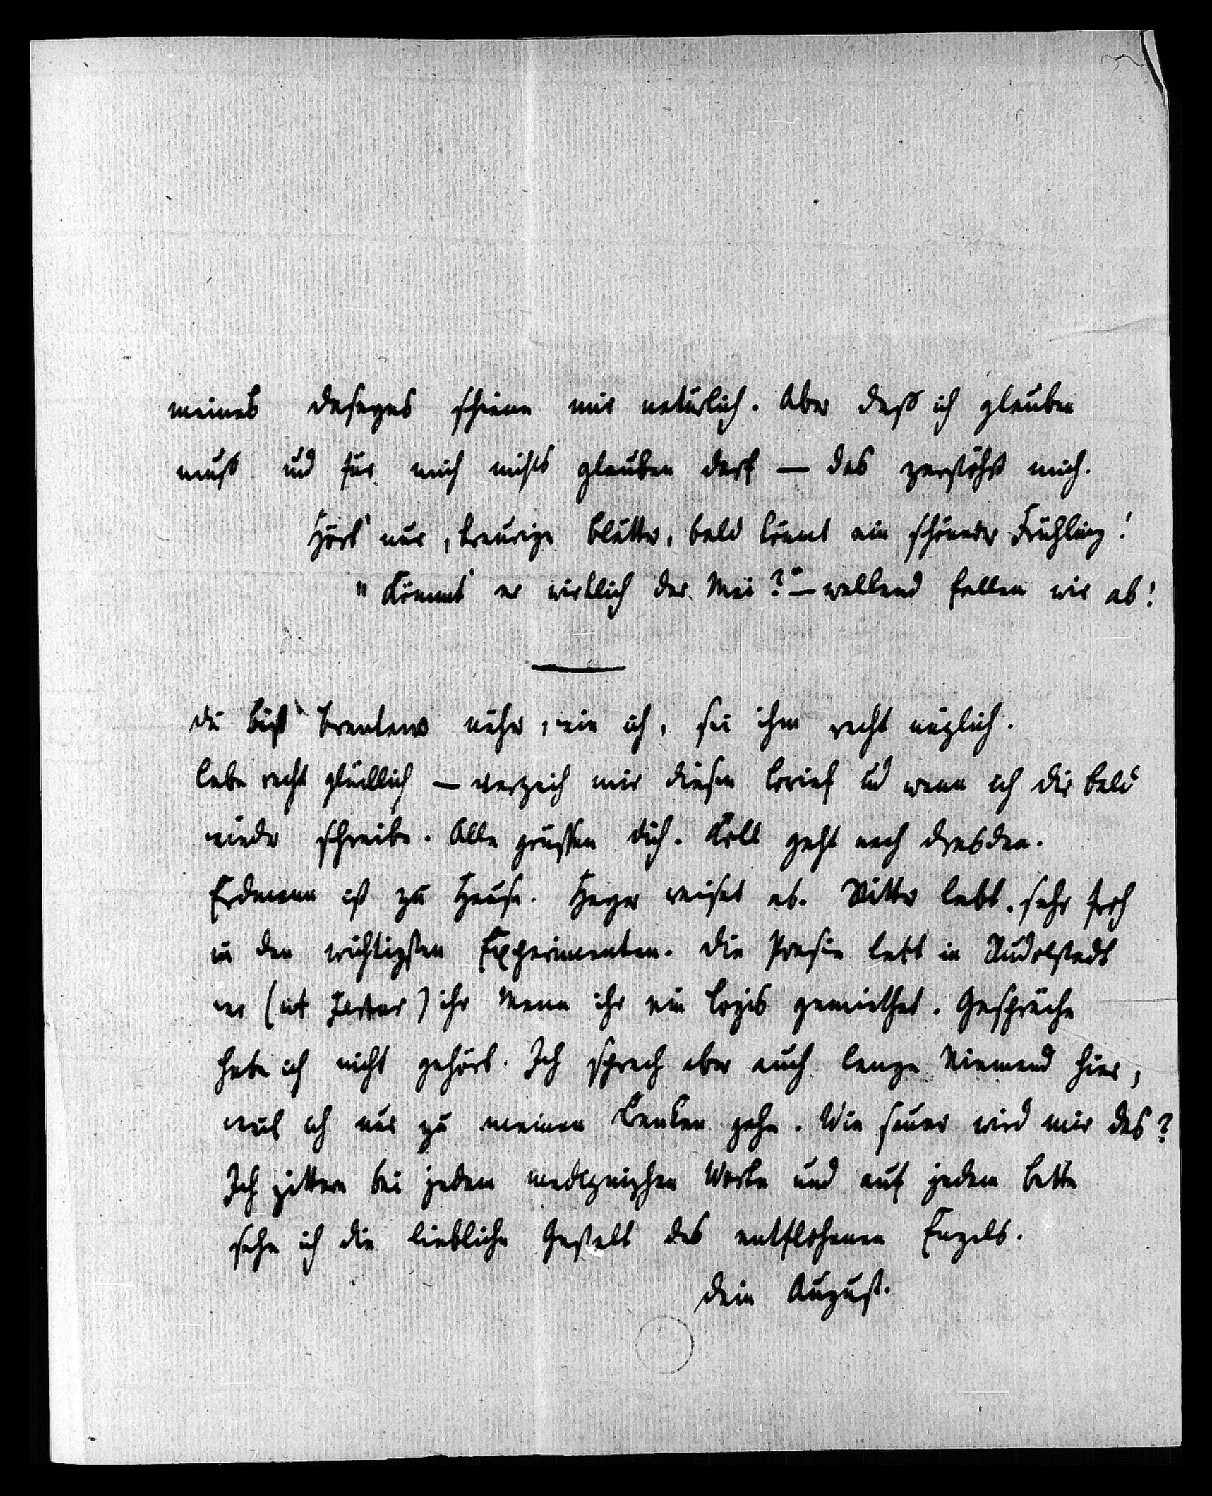 meines daseyns schiene mir natürlich. Aber daß ich glauben
muß und für mich nichts glauben darf — das zerstöhrt mich.
Hört nur, traurige Blätter, bald kömt ein schöneder Frühling!
"Kömmt er wirklich der Mai?" — wellend fallen wir ab!
du bist Brentano näher, wie ich, sei ihm recht nüzlich.
lebe recht glücklich — verzeih mir diesen brief und wenn ich dir bald
wieder schreibe. Alle grüssen dich. Koll geht nach dresden.
Erdmann ist zu Hause. Heyer reiset ab. Ritter lebt sehr froh
in den wichtigsten Experimenten. die Poesie lebt in Rudolstadt
wo ihr Mann ihr ein logis gemiethet. Gespräche
habe ich nicht gehört. Ich sprech aber auch lange Niemand hier,
weil ich nur zu meinen Kranken gehe. Wie sauer wird mir das?
Ich zittere bei jedem medizinischen Worte und auf jedem bette
sehe ich die liebliche Gestalt des entflohenen Engels.
dein August.